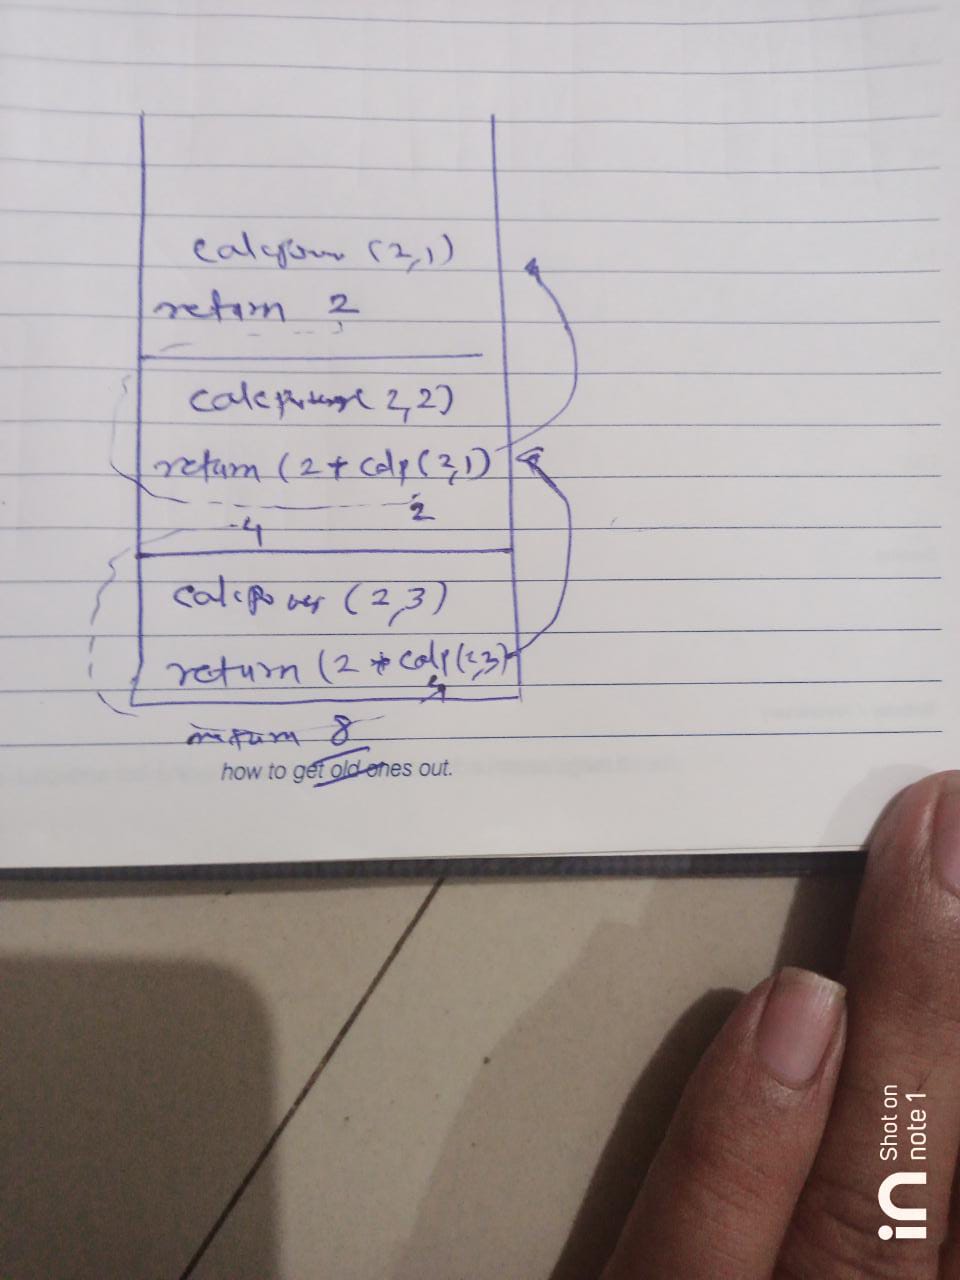 calcpower (2,1)
return 2
calcpower( 2,2)
return (2 * calp(2,1)
2
4
calcpower (2,3)
return (2 * calp(2,3)
4
return 8
how to get old ones out.
Shot on
note 1
in